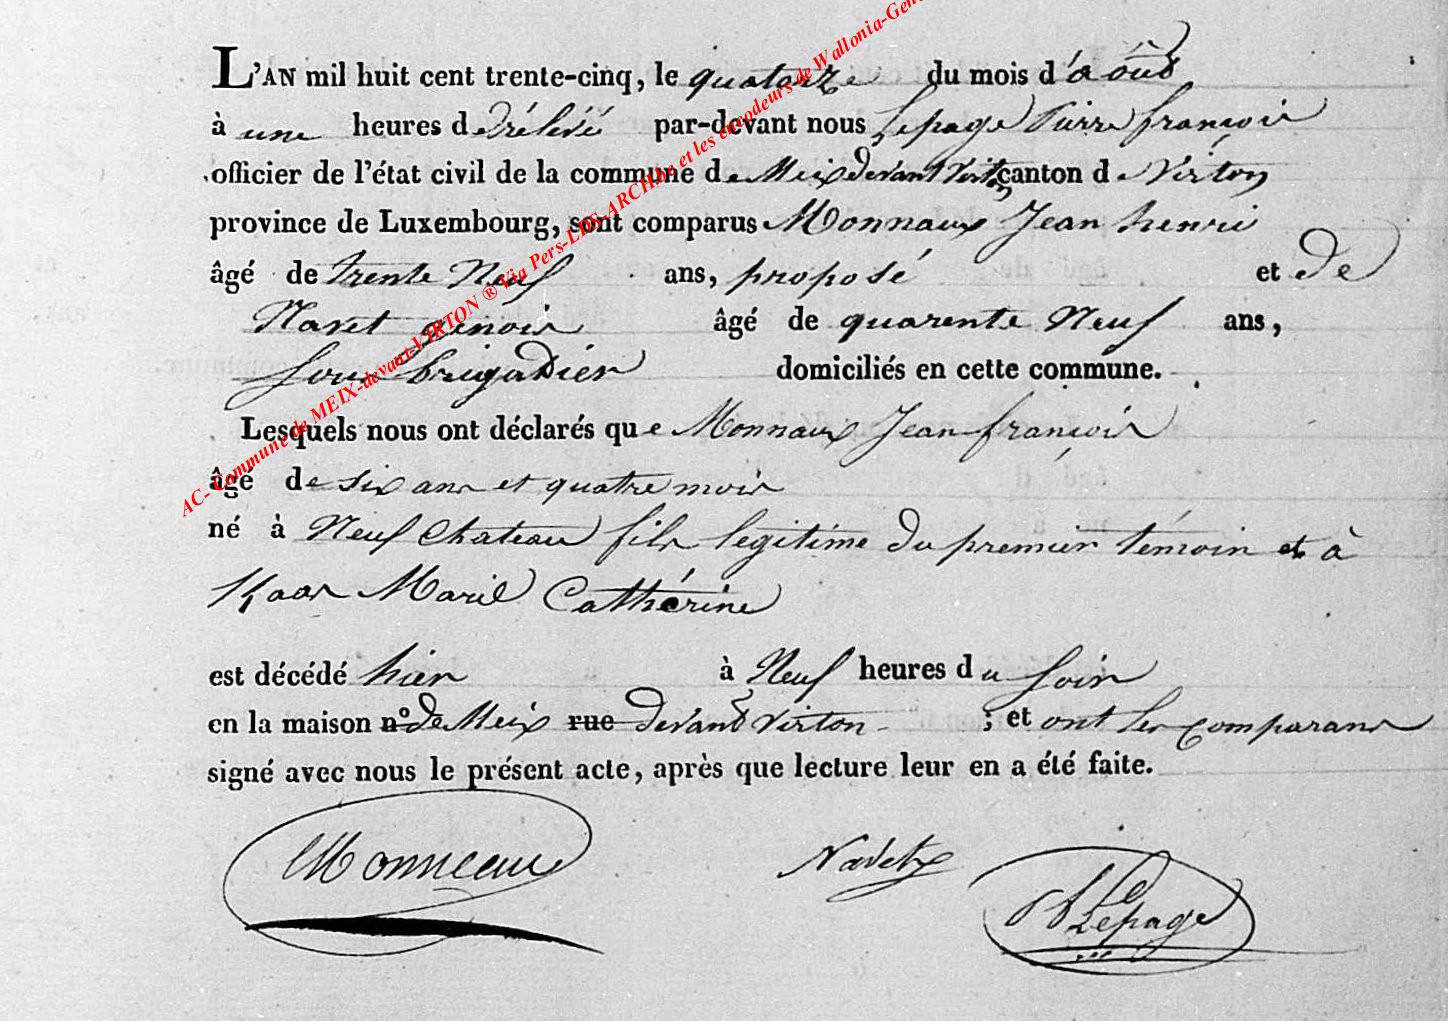 L'AN mil huit cent trente-cinq, le quatorze du mois d'août
à une heures de rélevé par-devant nous Lepage Pierre françois
officier de l'état civil de la commune de Meix devant Virton canton de Virton
province de Luxembourg, sont comparus Monnaux Jean henri
âgé de trente Neuf ans, proposé et de
Navet âgé de quarente Neuf ans,
sous brigadier domiciliés en cette commune.
Lesquels nous ont déclarés que Monnaux Jean françois
âgé de six ans et quatre mois
né à Neuf Chateau fils legitime du premier témoin et à
Kaas Marie Cathérine
est décédé hier à Neuf heures du soir
en la maison n° de Meix rue devant Virton ; et ont les comparans
signé avec nous le présent acte, après que lecture leur en a été faite.
Monneau Navet Lepage
AC- Commune de MEIX-devant-VIRTON ® Via Pers-LDS-ARCH.be et les encodeurs de Wallonia-Gen